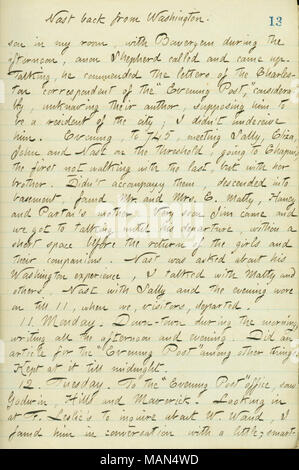 Nast back from Washington.
13
son in my room, with Bowryem during the
afternoon, anon Shepherd called and came up.
Talking, he commended the letters of the Charles-
ton correspondent of the "Evening Post," considera-
bly, unknowing their author, supposing him to
be a resident of the city, & I didn't undeceive
him. Evening, to 745, meeting Sally, Eliza,
John and Nast on the threshold, going to Chapin's,
the first not walking with the last, but with her
brother. Didn't accompany them, descended into
basement, found Mr. and Mrs. E. Matty, Haney
and Parton's mother. Very soon Jim came and
we got to talking until his departure, within a
short space before the return of the girls and
their companions. Nast was asked about his
Washington experience, & I talked with Matty and
others, Nast with Sally and the evening wore
on till 11, when we, visitors, departed.
11. Monday. Down-town during the morning,
writing all the afternoon and evening. Did an
article for the "Evening Post" among other things.
Kept at it till midnight.
12. Tuesday. To the "Evening Post" office, saw
Godwin, Hills and Maverick. Looking in
at F. Leslie's to inquire about W. Waud, I
found him in conversation with a little, smart-
alamy
Image ID: MAN4WD
www.alamy.com